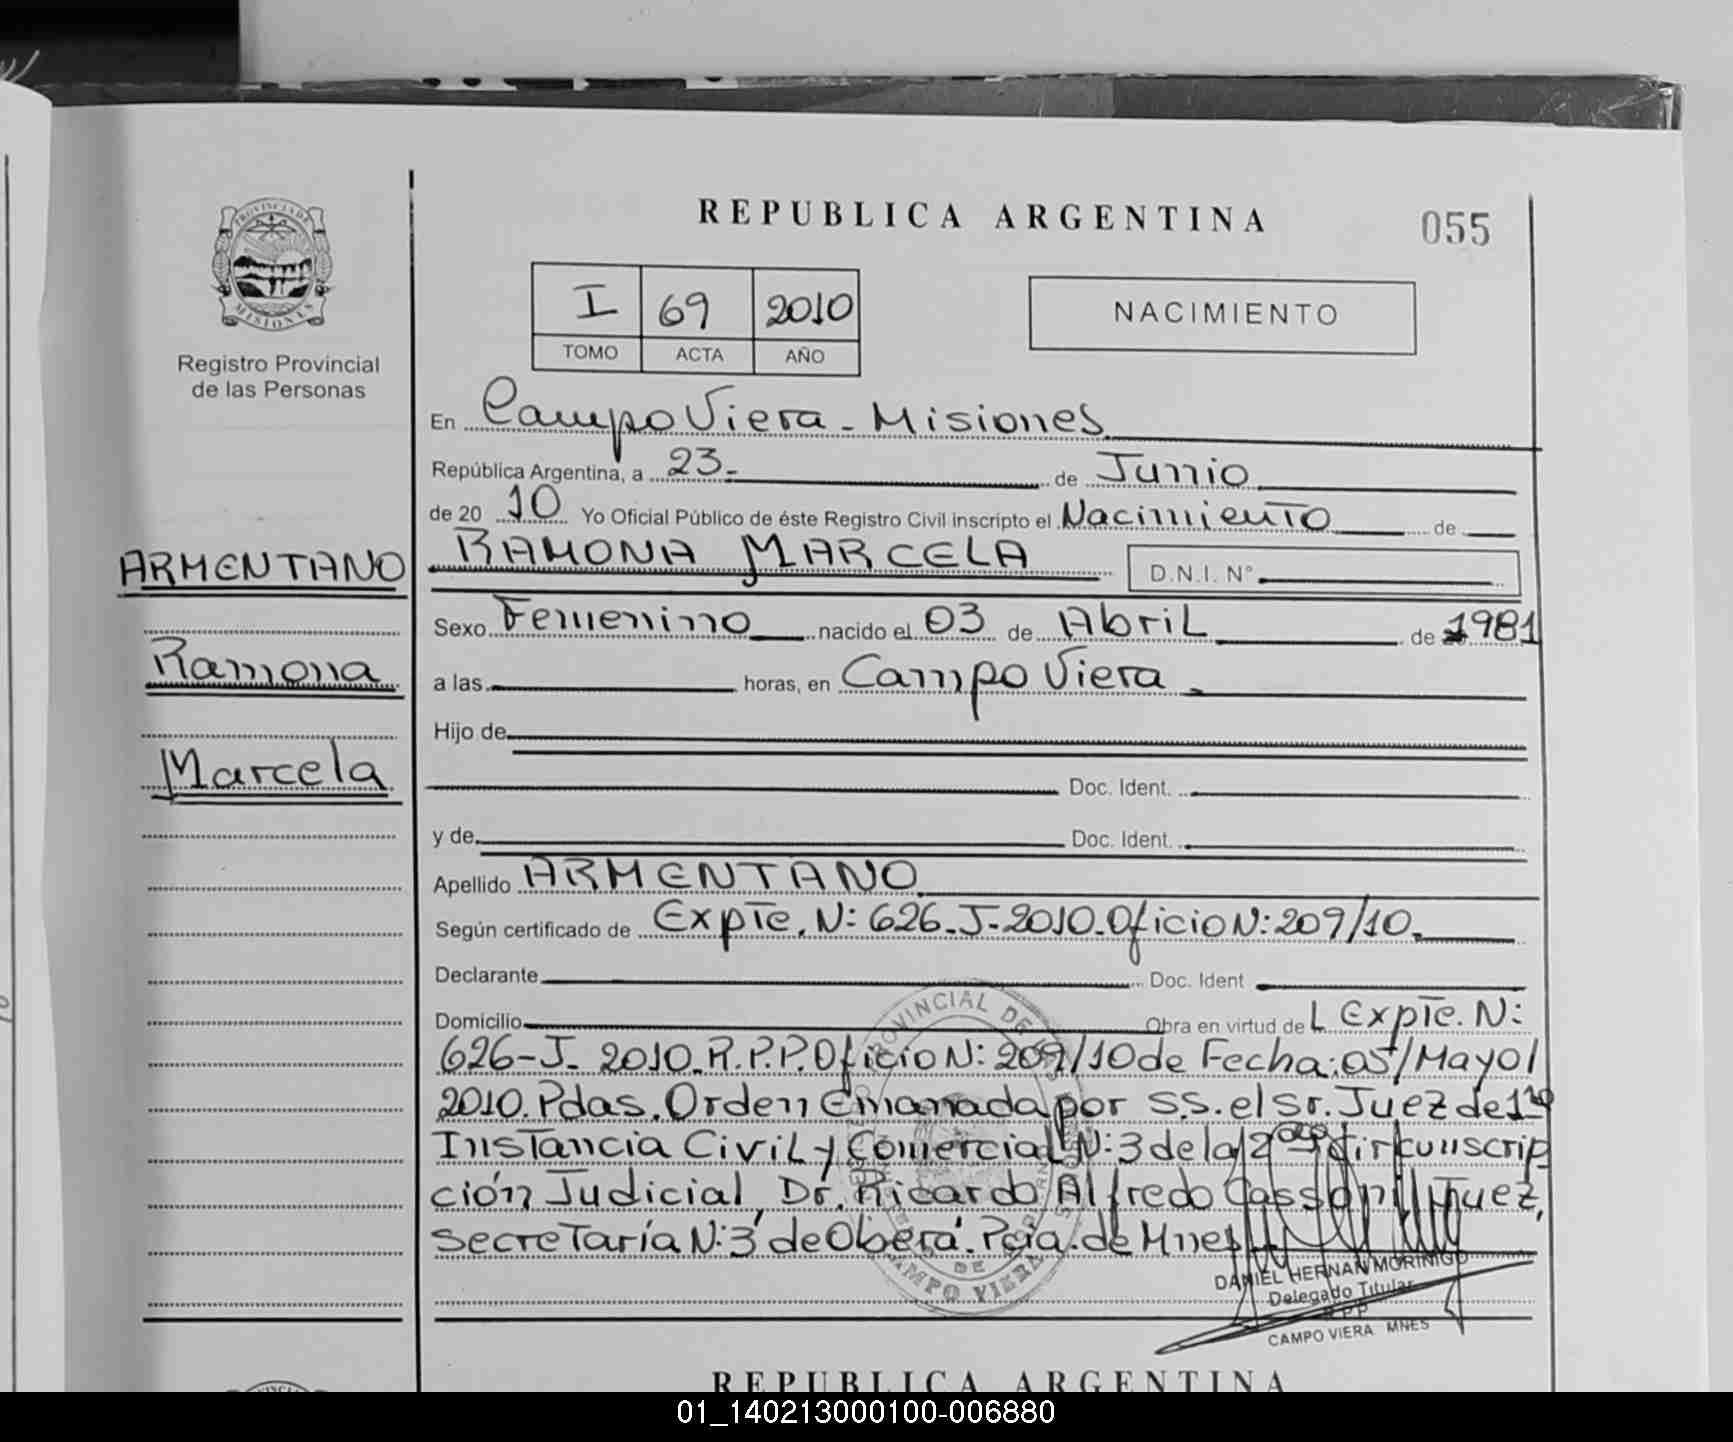 REPUBLICA ARGENTINA
055
PROVINCIA DE
MISIONES
Registro Provincial
de las Personas
I 69 2010
TOMO ACTA AÑO
NACIMIENTO
En Campo Viera - Misiones
República Argentina, a 23. de Junio
de 20 10 Yo Oficial Público de éste Registro Civil inscripto el Nacimiento de
ARMENTANO
RAMONA MARCELA D.N.I. N°
Sexo Femenino nacido el 03 de Abril de 1981
Ramona
a las horas, en Campo Viera.
Hijo de
Marcela
Doc. Ident.
y de Doc. Ident.
Apellido ARMENTANO
Según certificado de Expte. N: 626-J-2010. Oficio N: 209/10.
Declarante Doc. Ident
Domicilio Obra en virtud de L Expte. N:
626-J- 2010. R.P.P. Oficio N: 209/10 de Fecha: 05/Mayo/
2010. Pdas. Orden Emanada por S.S. el Sr. Juez de 1ra
Instancia Civil y Comercial N: 3 de la 2da Circunscrip
ción Judicial, Dr. Ricardo Alfredo Cassoni Juez,
Secretaría N: 3 de Oberá. Pcia. de Mnes
DANIEL HERNAN MORINIGO
Delegado Titular
R.P.P.
CAMPO VIERA MNES
CAMPO VIERA
REPUBLICA ARGENTINA
01_140213000100-006880